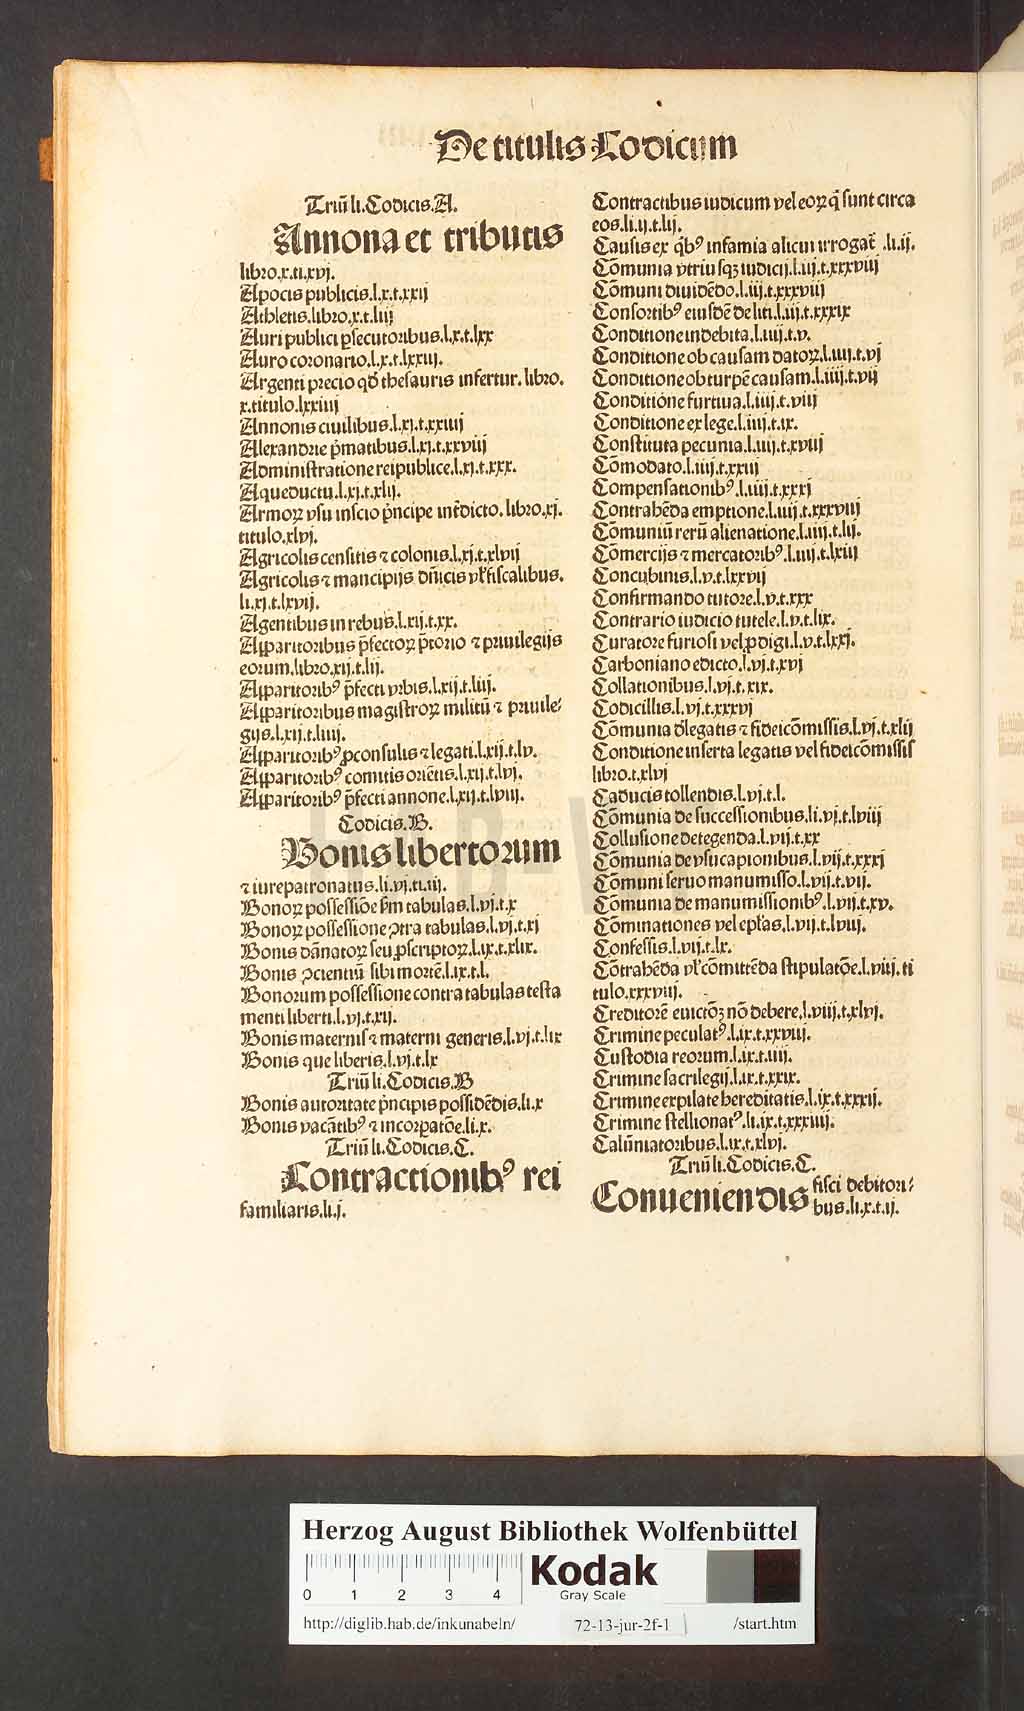 De titulis Codicum
Triū li. Codicis. A.
Annona et tributis
libro.x.ti.xvj.
Apocis publicis.l.x.t.xxij
Athletis.libro.x.t.liij
Auri publici ꝑsecutoribus.l.x.t.lxx
Auro coronario.l.x.t.lxxiij.
Argenti precio qd̛ thesauris infertur. libro.
x.titulo.lxxiiij
Annonis ciuilibus.l.xj.t.xxiiij
Alexandrie p̄matibus.l.xj.t.xxviij
Administratione reipublice.l.xj.t.xxx.
Aqueductu.l.xj.t.xlij.
Armoꝝ vsu inscio p̄ncipe int̄dicto. libro.xj.
titulo.xlvj.
Agricolis censitis ⁊ colonis.l.xj.t.xlvij
Agricolis ⁊ mancipijs dn̄icis vl̛ fiscalibus.
li.xj.t.lxvij.
Agentibus in rebus.l.xij.t.xx.
Apparitoribus p̄fectoꝝ p̄torio ⁊ priuilegijs
eorum.libro.xij.t.lij.
Apparitorib⁹ p̄fecti vrbis.l.xij.t.liij.
Apparitoribus magistroꝝ militū ⁊ priuile⸗
gijs.l.xij.t.liiij.
Apparitorib⁹ ꝓconsulis ⁊ legati.l.xij.t.lv.
Apparitorib⁹ comitis oriētis.l.xij.t.lvj.
Apparitorib⁹ p̄fecti annone.l.xij.t.lviij.
Codicis. B.
Bonis libertorum
⁊ iure patronatus.li.vj.ti.iij.
Bonoꝝ possessiōe s̄m tabulas.l.vj.t.x
Bonoꝝ possessione ꝯtra tabulas.l.vj.t.xj
Bonis dānatoꝝ seu ꝓscriptoꝝ.l.ix.t.xlix.
Bonis ꝯscientiū sibi mortē.l.ix.t.l.
Bonorum possessione contra tabulas testa
menti liberti.l.vj.t.xij.
Bonis maternis ⁊ materni generis.l.vj.t.lix
Bonis que liberis.l.vj.t.lx
Triū li. Codicis. B
Bonis autoritate p̄ncipis possidēdis.li.x
Bonis vacātib⁹ ⁊ incorꝑatōe.li.x.
Triū li. Codicis. C.
Contractionib⁹ rei
familiaris.li.j.
Contractibus iudicum vel eoꝝ q̄ sunt circa
eos.li.ij.t.lij.
Causis ex q̄b⁹ infamia alicui irrogat̄ .li.ij.
Cōmunia vtriusqꝫ iudicij.l.iij.t.xxxviij
Cōmuni diuidēdo.l.iij.t.xxxviij
Consortib⁹ eiusdē de liti.l.iij.t.xxxix
Conditione indebita.l.iiij.t.v.
Conditione ob causam datoꝝ.l.iiij.t.vj
Conditione ob turpē causam.l.iiij.t.vij
Conditione furtiua.l.iiij.t.viij
Conditione ex lege.l.iiij.t.ix.
Constituta pecunia.l.iiij.t.xviij
Cōmodato.l.iiij.t.xxiij
Compensationib⁹.l.iiij.t.xxxj
Contrahēda emptione.l.iiij.t.xxxviij
Cōmuniū rerū alienatione.l.iiij.t.lij.
Cōmercijs ⁊ mercatorib⁹.l.iiij.t.lxiij
Concubinis.l.v.t.lxxvij
Confirmando tutore.l.v.t.xxx
Contrario iudicio tutele.l.v.t.lix.
Curatore furiosi vel ꝓdigi.l.v.t.lxxj.
Carboniano edicto.l.vj.t.xvj
Collationibus.l.vj.t.xix.
Codicillis.l.vj.t.xxxvj
Cōmunia d̛ legatis ⁊ fideicōmissis.l.vj.t.xlij
Conditione inserta legatis vel fideicōmissis
libro.t.xlvj
Caducis tollendis.l.vj.t.l.
Cōmunia de successionibus.li.vj.t.lviij
Collusione detegenda.l.vij.t.xx
Cōmunia de vsucapionibus.l.vij.t.xxxj
Cōmuni seruo manumisso.l.vij.t.vij.
Cōmunia de manumissionib⁹.l.vij.t.xv.
Cōminationes vel epl̛as.l.vij.t.lvij.
Confessis.l.vij.t.lx.
Cōtrahēda vl̛ cōmittēda stipulatōe.l.viij.ti
tulo.xxxviij.
Creditorē euictōꝫ nō debere.l.viij.t.xlvj.
Crimine peculat⁹.l.ix.t.xxviij.
Custodia reorum.l.ix.t.iiij.
Crimine sacrilegij.l.ix.t.xxix.
Crimine expilate hereditatis.l.ix.t.xxxij.
Crimine stellionat⁹.li.ix.t.xxxiiij.
Calūniatoribus.l.ix.t.xlvj.
Triū li. Codicis. C.
Conueniendis fisci debitori⸗
bus.li.x.t.ij.
HAB-W
Herzog August Bibliothek Wolfenbüttel
0 1 2 3 4
Kodak
Gray Scale
http://diglib.hab.de/inkunabeln/ 72-13-jur-2f-1 /start.htm